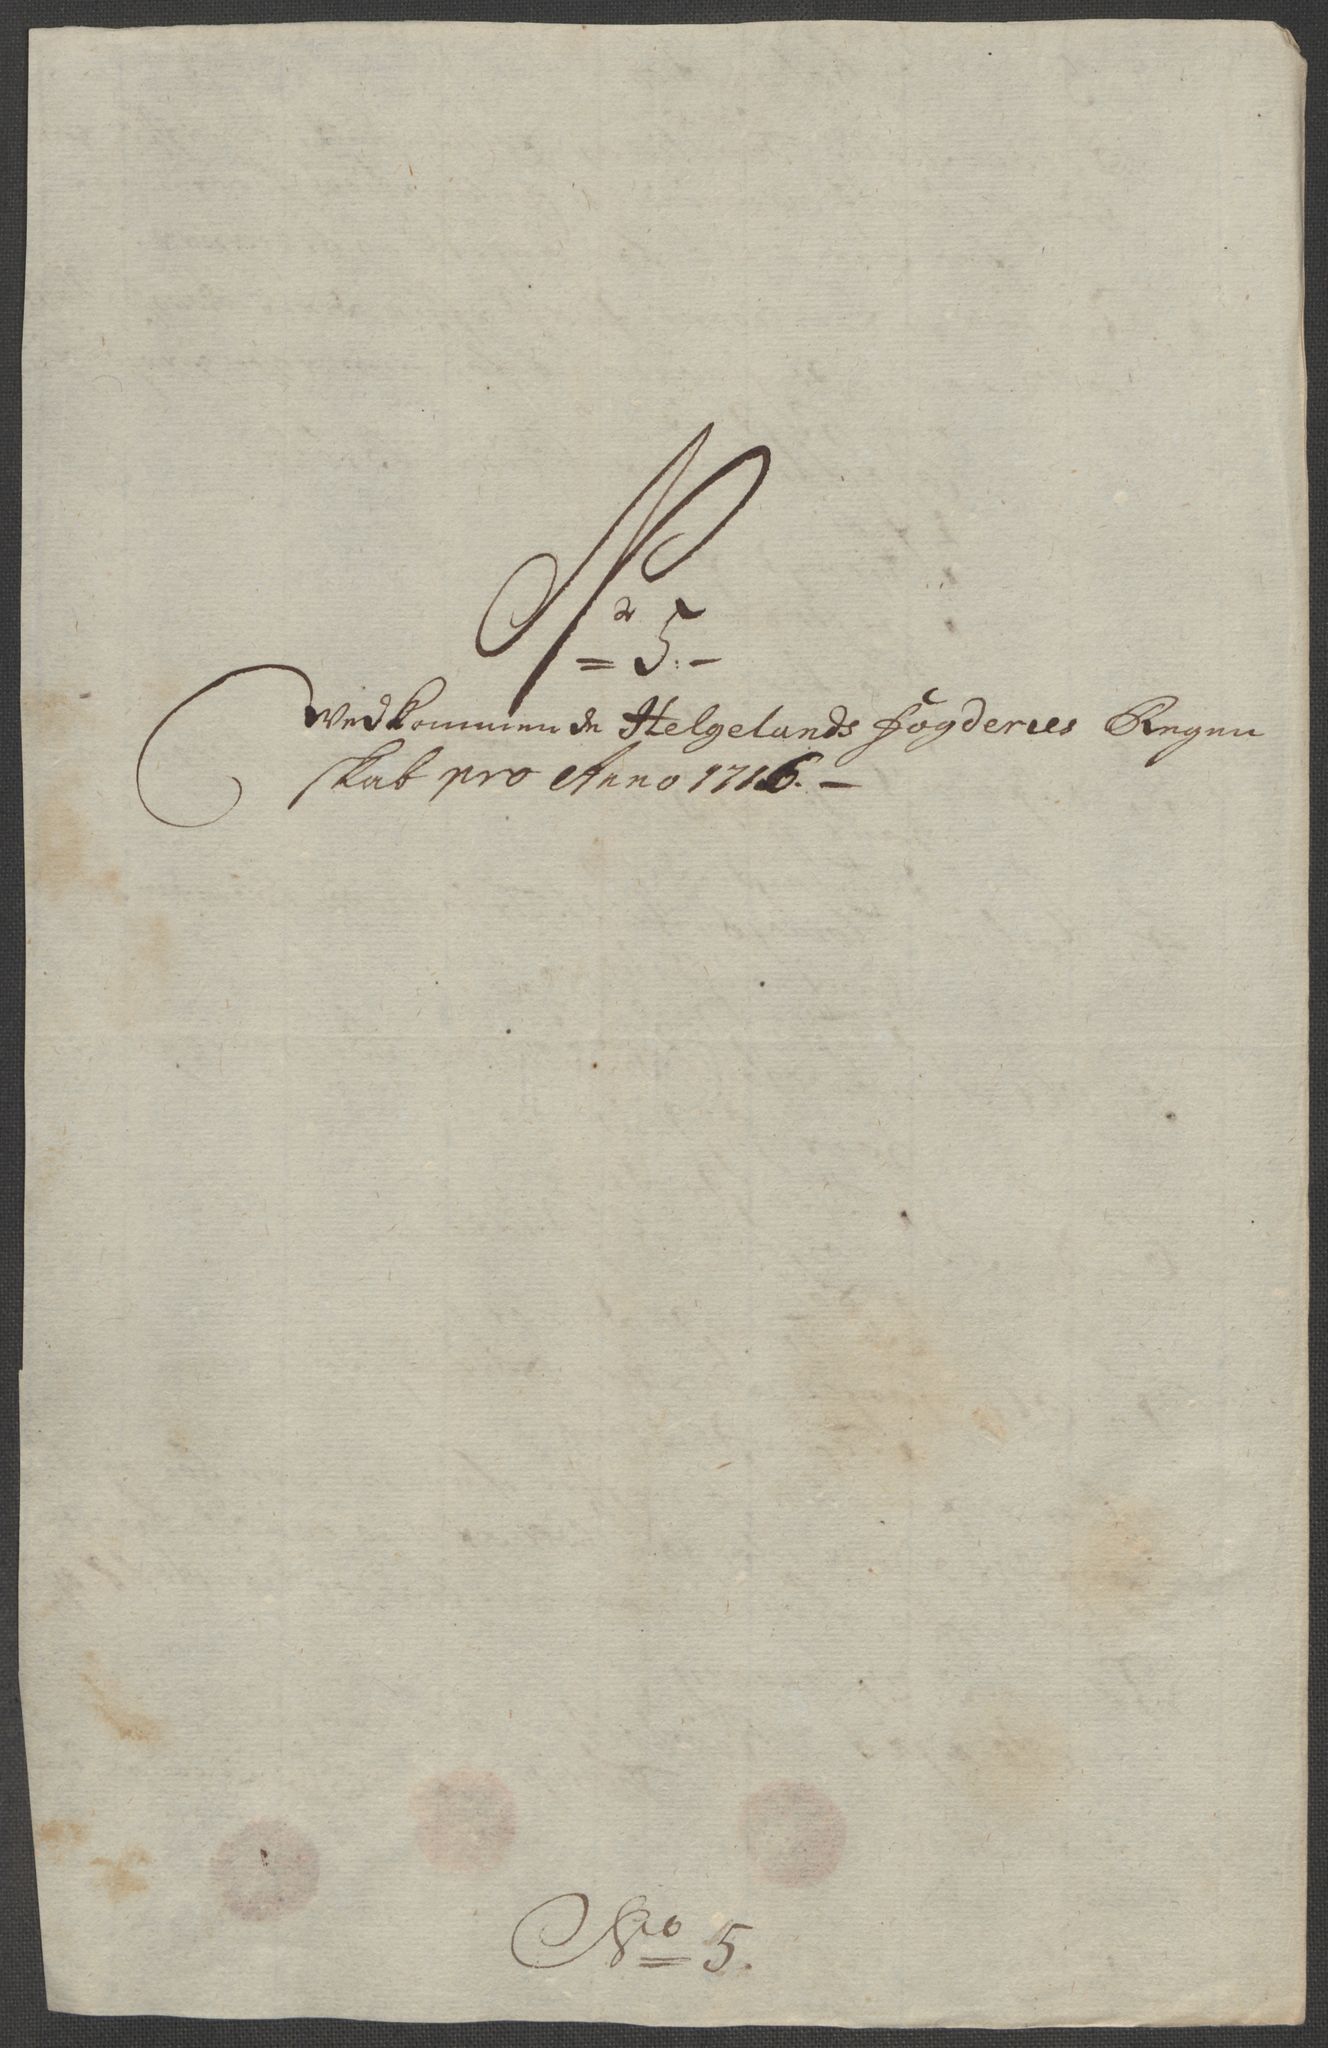 No 5.
Vedkommende Helgelands fogderies Regen
skab pro Anno 1716.
No 5.